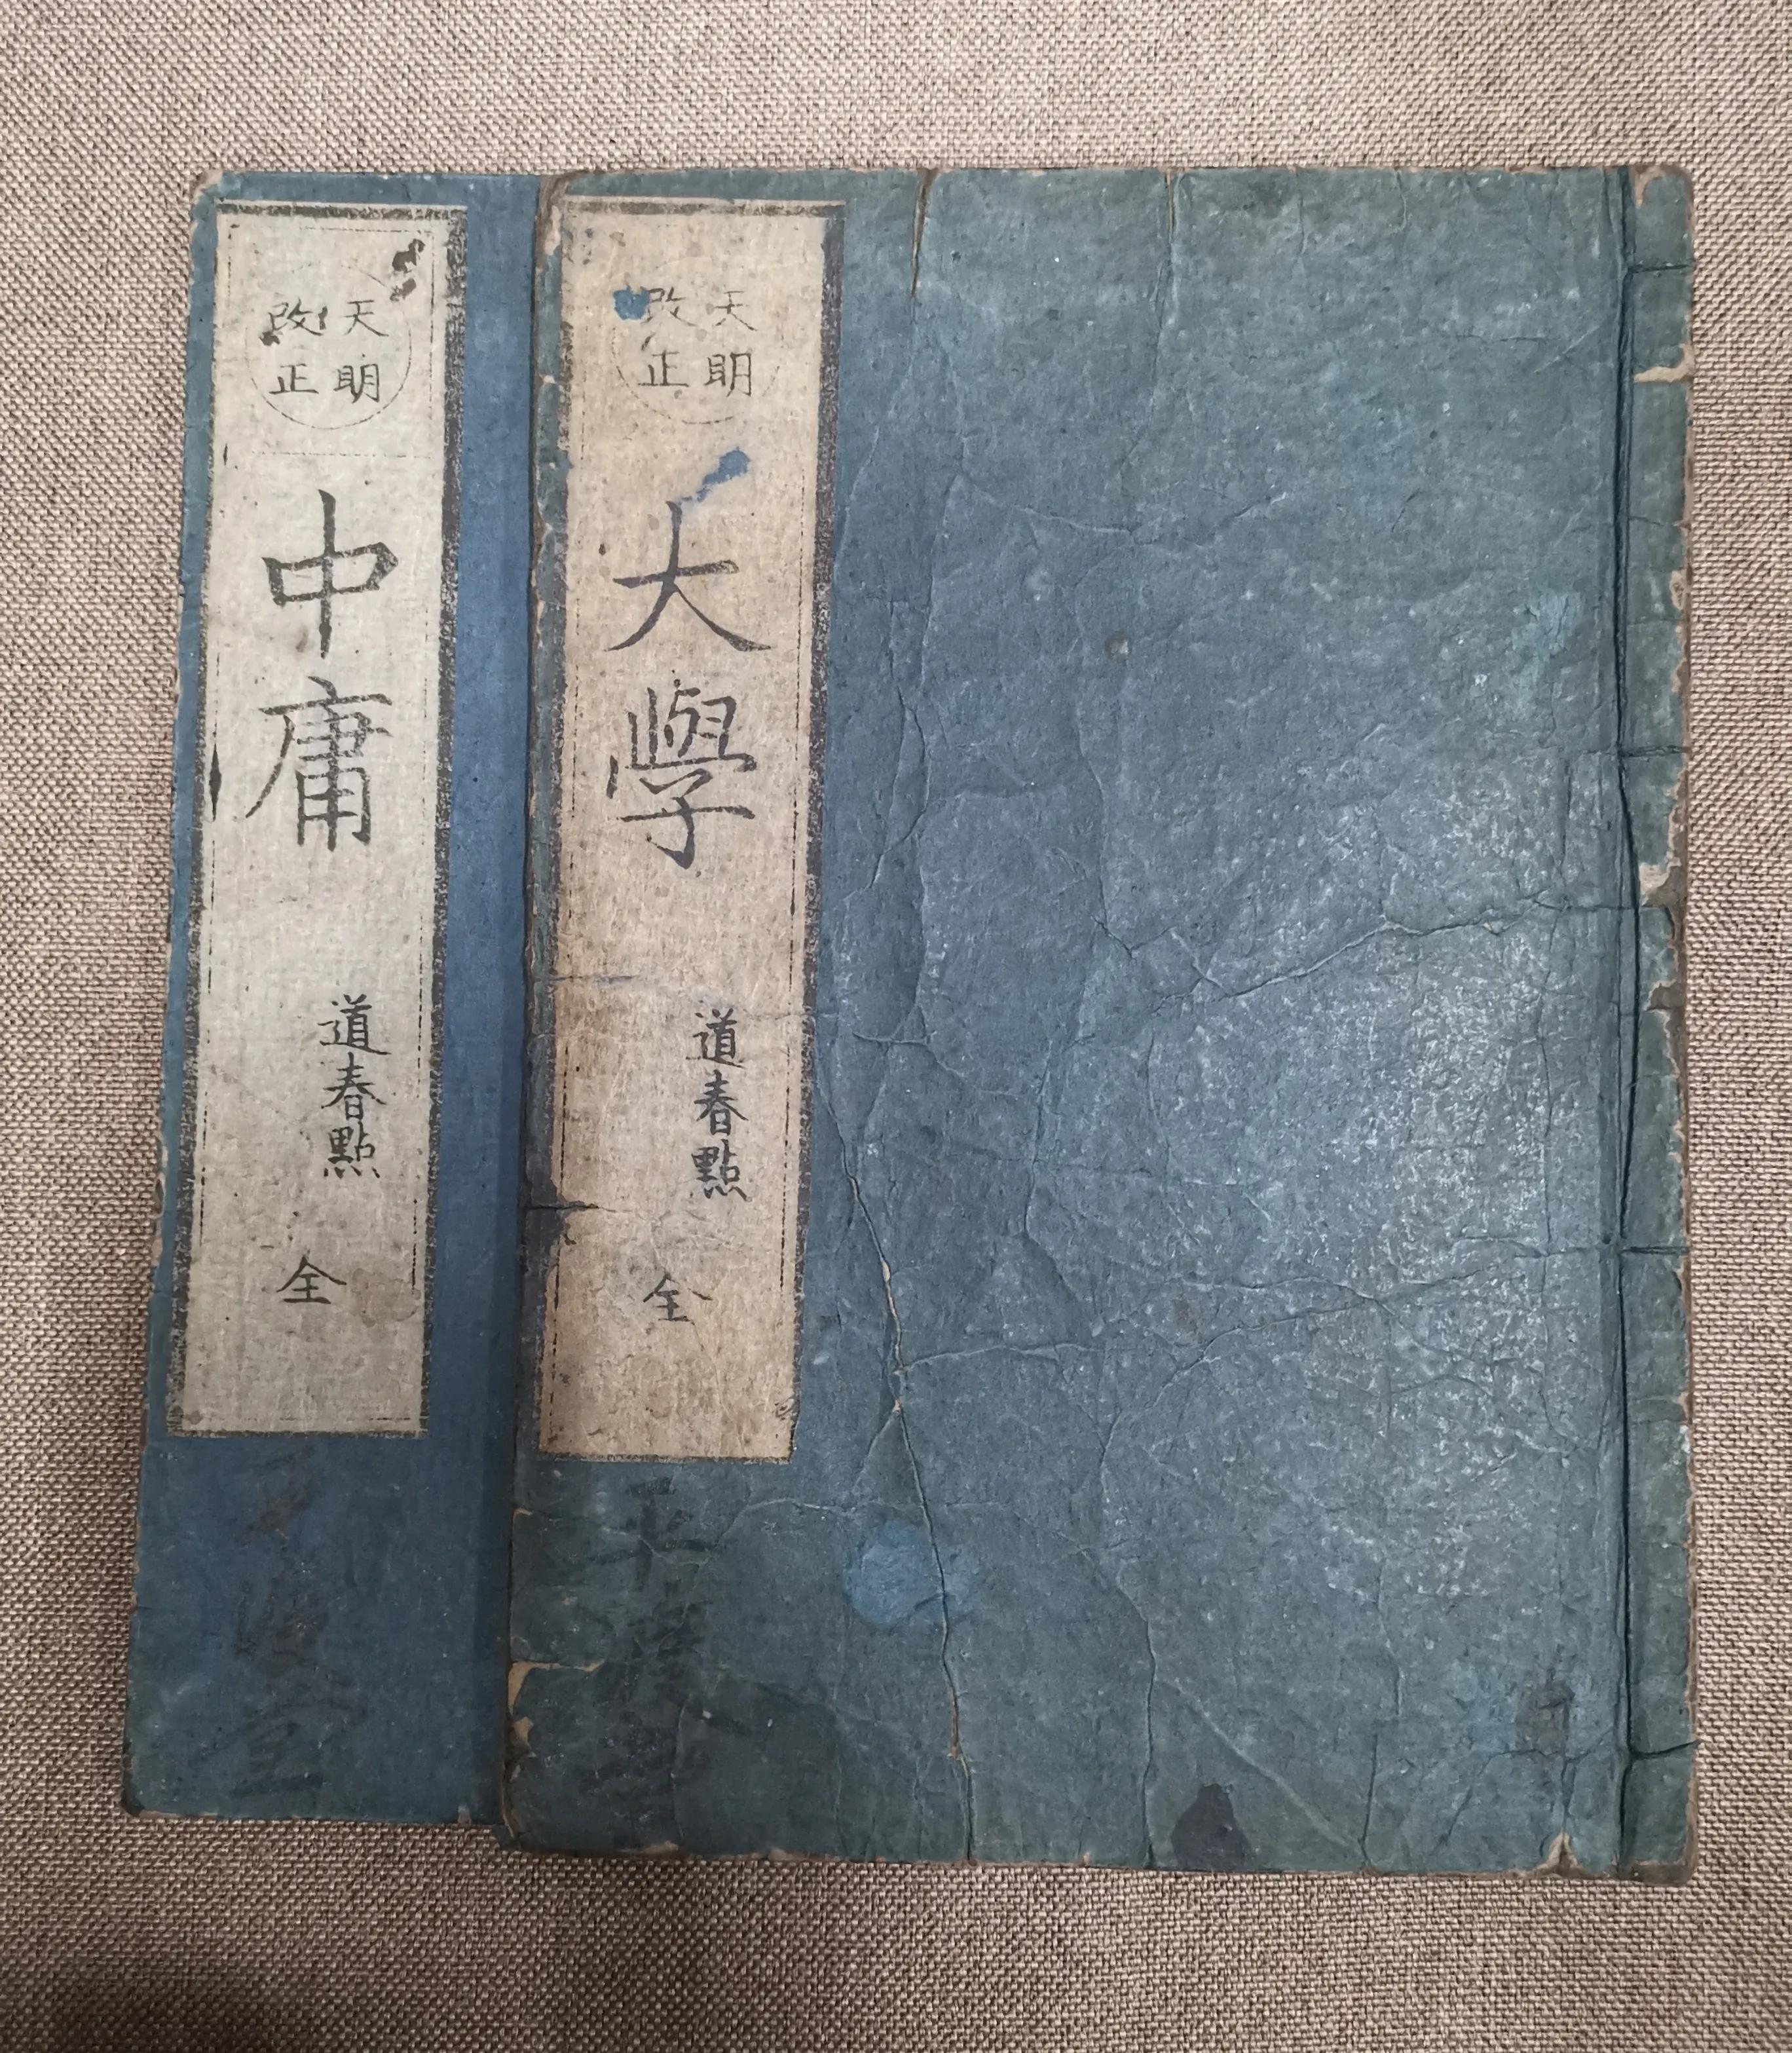 天明
改正
大學
道春點
全
天明
改正
中庸
道春點
全